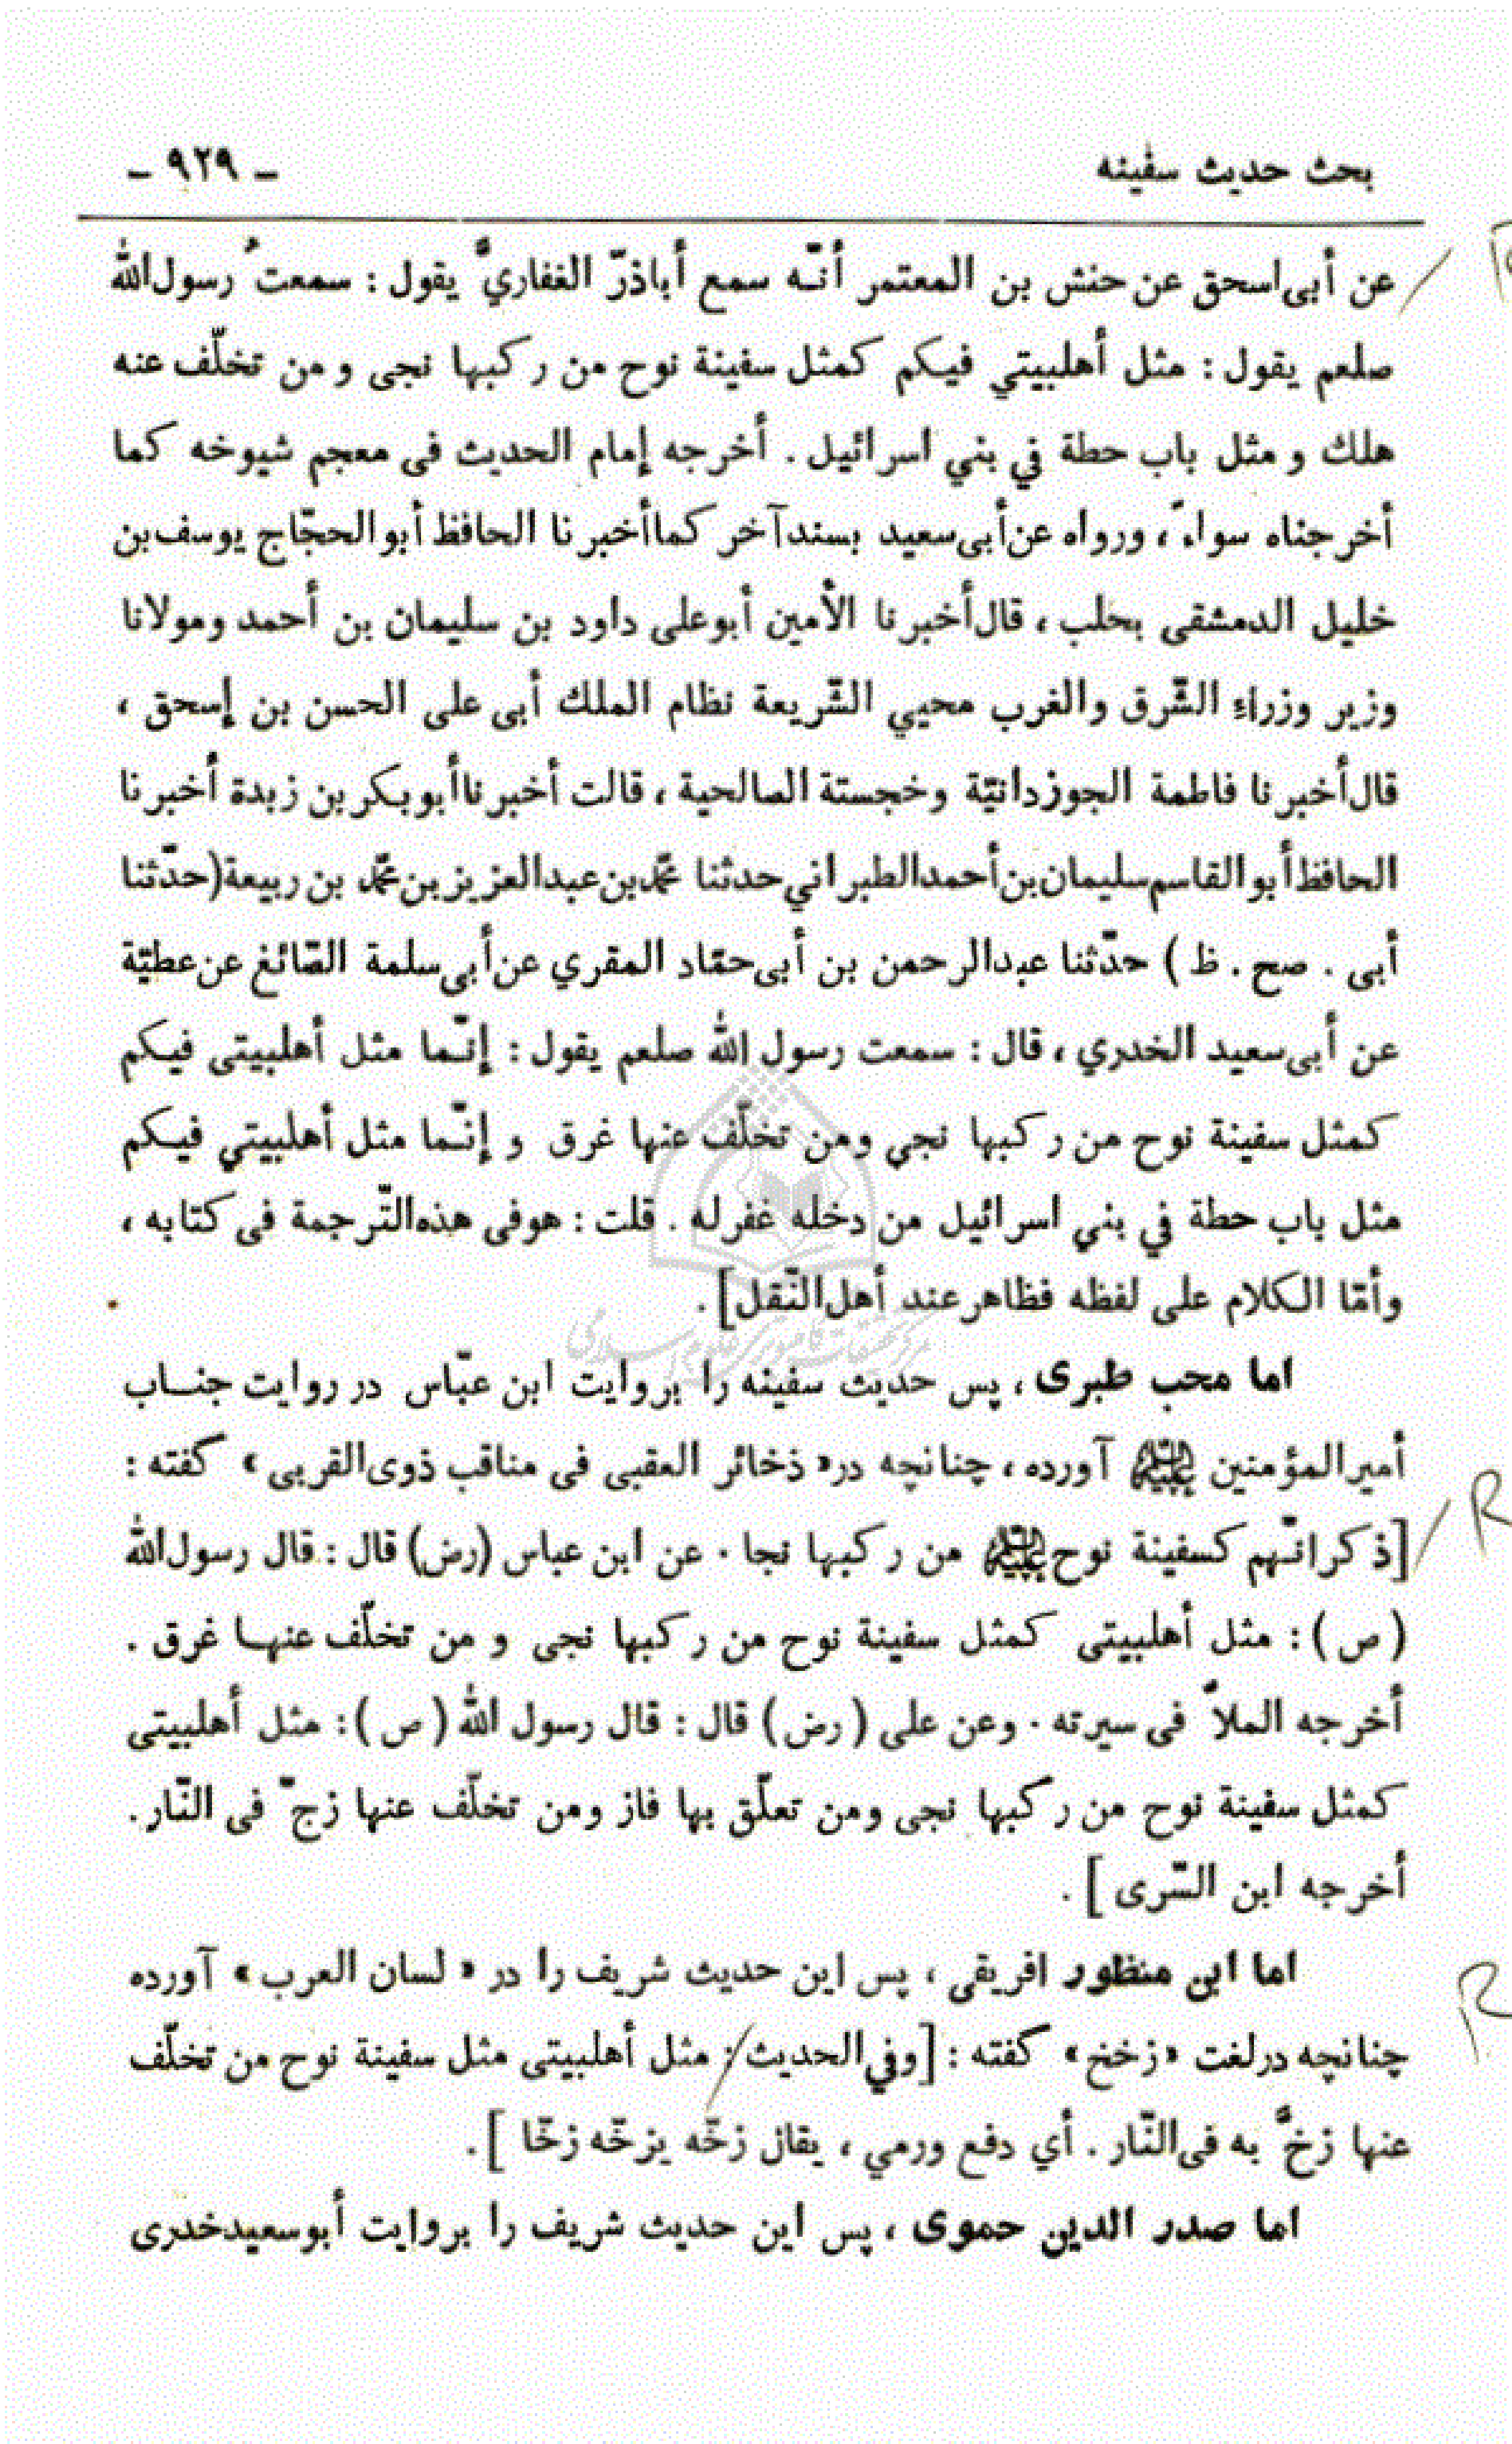 بحث حدیث سفینه
ـ ٩٢٩ ـ
عن أبی‌اسحق عن حنش بن المعتمر أنّـه سمع أباذرّ الغفاريَّ يقول : سمعتُ رسول‌الله
صلعم يقول : مثل أهلبيتي فيكم كمثل سفينة نوح من ركبها نجى و من تخلّف عنه
هلك و مثل باب حطة في بني اسرائيل . أخرجه إمام الحديث فى معجم شيوخه كما
أخرجناه سواءً ، ورواه عن‌أبى‌سعيد بسندآخر كماأخبرنا الحافظ أبوالحجّاج يوسف‌بن
خليل الدمشقى بحلب ، قال‌أخبرنا الأمين أبوعلى داود بن سليمان بن أحمد ومولانا
وزير وزراء الشّرق والغرب محيي الشّريعة نظام الملك أبى على الحسن بن إسحق ،
قال‌أخبرنا فاطمة الجوزدانيّة وخجستة الصالحية ، قالت أخبرناأبوبكربن زبدة أخبرنا
الحافظ‌أبوالقاسم‌سليمان‌بن‌أحمدالطبراني‌حدثنا محمّدبن‌عبدالعزيزبن‌محمّد بن‌ربيعة(حدّثنا
أبى . صح . ظ ) حدّثنا عبدالرحمن بن أبى‌حمّاد المقري عن‌أبى‌سلمة الصّائغ عن‌عطيّة
عن أبى‌سعيد الخدري ، قال : سمعت رسول الله صلعم يقول : إنّـما مثل أهلبيتى فيكم
كمثل سفينة نوح من ركبها نجي ومن تخلّف عنها غرق و إنّـما مثل أهلبيتي فيكم
مثل باب حطة في بني اسرائيل من دخله غفرله . قلت : هوفى هذه‌التّرجمة فى كتابه ،
وأمّا الكلام على لفظه فظاهرعند أهل‌النّقل] .
مرکز تحقیقات کامپیوتری علوم اسلامی
اما محب طبری ، پس حدیث سفینه را بروایت ابن عبّاس در روایت جنـاب
أمیرالمؤمنین علیه‌السلام آورده ، چنانچه در« ذخائر العقبى فى مناقب ذوى‌القربى » گفته :
[ذكرانّـهم كسفينة نوح علیه‌السلام من ركبها نجا . عن ابن عباس (رض) قال : قال رسول‌الله
( ص ) : مثل أهلبيتى كمثل سفينة نوح من ركبها نجى و من تخلّف عنهـا غرق .
أخرجه الملاّ فى سيرته . وعن على ( رض ) قال : قال رسول الله ( ص ) : مثل أهلبيتى
كمثل سفينة نوح من ركبها نجى ومن تعلّق بها فاز ومن تخلّف عنها زجّ فى النّار.
أخرجه ابن السّرى ] .
اما ابن منظور افریقی ، پس این حدیث شریف را در « لسان العرب » آورده
چنانچه درلغت «زخخ» گفته : [وفي‌الحديث : مثل أهلبيتى مثل سفينة نوح من تخلّف
عنها زخَّ به فى‌النّار . أي دفع ورمي ، يقال زخّه يزخّه زخّا ] .
اما صدر الدین حموی ، پس این حدیث شریف را بروایت أبوسعیدخدری
R
R